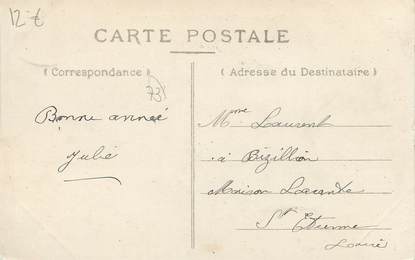 12-€
CARTE POSTALE
(Correspondance)
(Adresse du Destinataire)
73
Bonne année
Julie
Mme Laurent
à Bizillion
Maison Lacombe
St Etienne
Loire